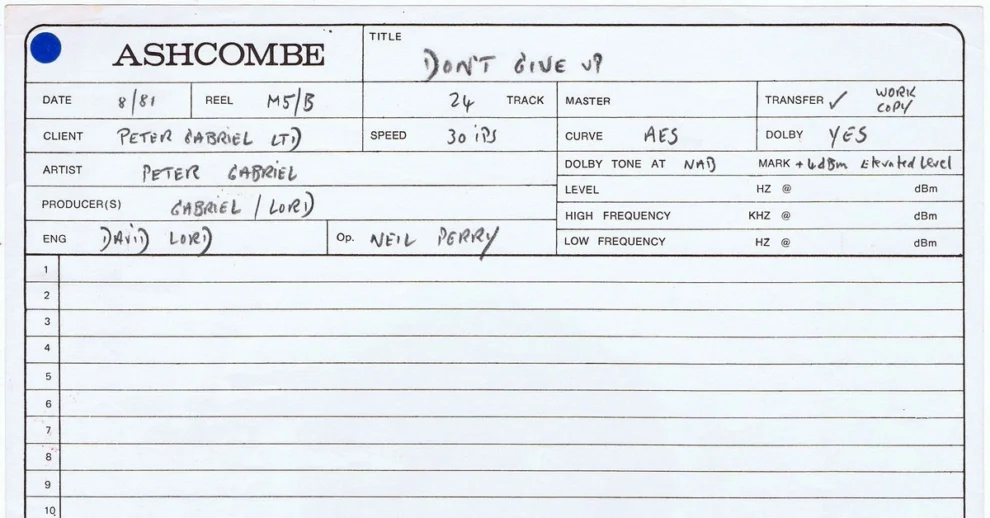 ASHCOMBE
TITLE
DON'T GIVE UP
DATE 8/81 REEL M5/B 24 TRACK MASTER TRANSFER ✓ WORK COPY
CLIENT PETER GABRIEL LTD SPEED 30 iPS CURVE AES DOLBY YES
ARTIST PETER GABRIEL
DOLBY TONE AT NAB MARK +4dBm Elevated Level
PRODUCER(S) GABRIEL / LORD
LEVEL HZ @ dBm
HIGH FREQUENCY KHZ @ dBm
ENG DAVID LORD Op. NEIL PERRY
LOW FREQUENCY HZ @ dBm
1
2
3
4
5
6
7
8
9
10